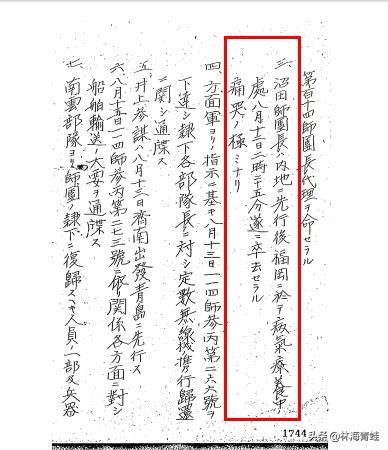 第百十四師團長代理ヲ命セラル
三、沼田師團長ハ内地ニ先行後福岡ニ於テ病氣療養中
處八月十三日二時二十五分遂ニ卒去セラル
痛哭ノ極ミナリ
四、方面軍ヨリノ指示ニ基キ八月十三日一一四師参丙第二六六號ヲ
下達シ隷下各部隊長ニ対シ定數無線機携行歸還
ニ関シ通牒ス
五、井上参謀八月十三日濟南出發青島ニ先行ス
六、八月十五日一一四師参丙第二七三號ニ依リ関係各方面ニ對シ
船舶輸送ノ大要ヲ通牒ス
七、南雲部隊ヨリ師團ノ隷下ニ復歸スヘキ人員ノ一部及兵器
1744
头条@林海青蛙